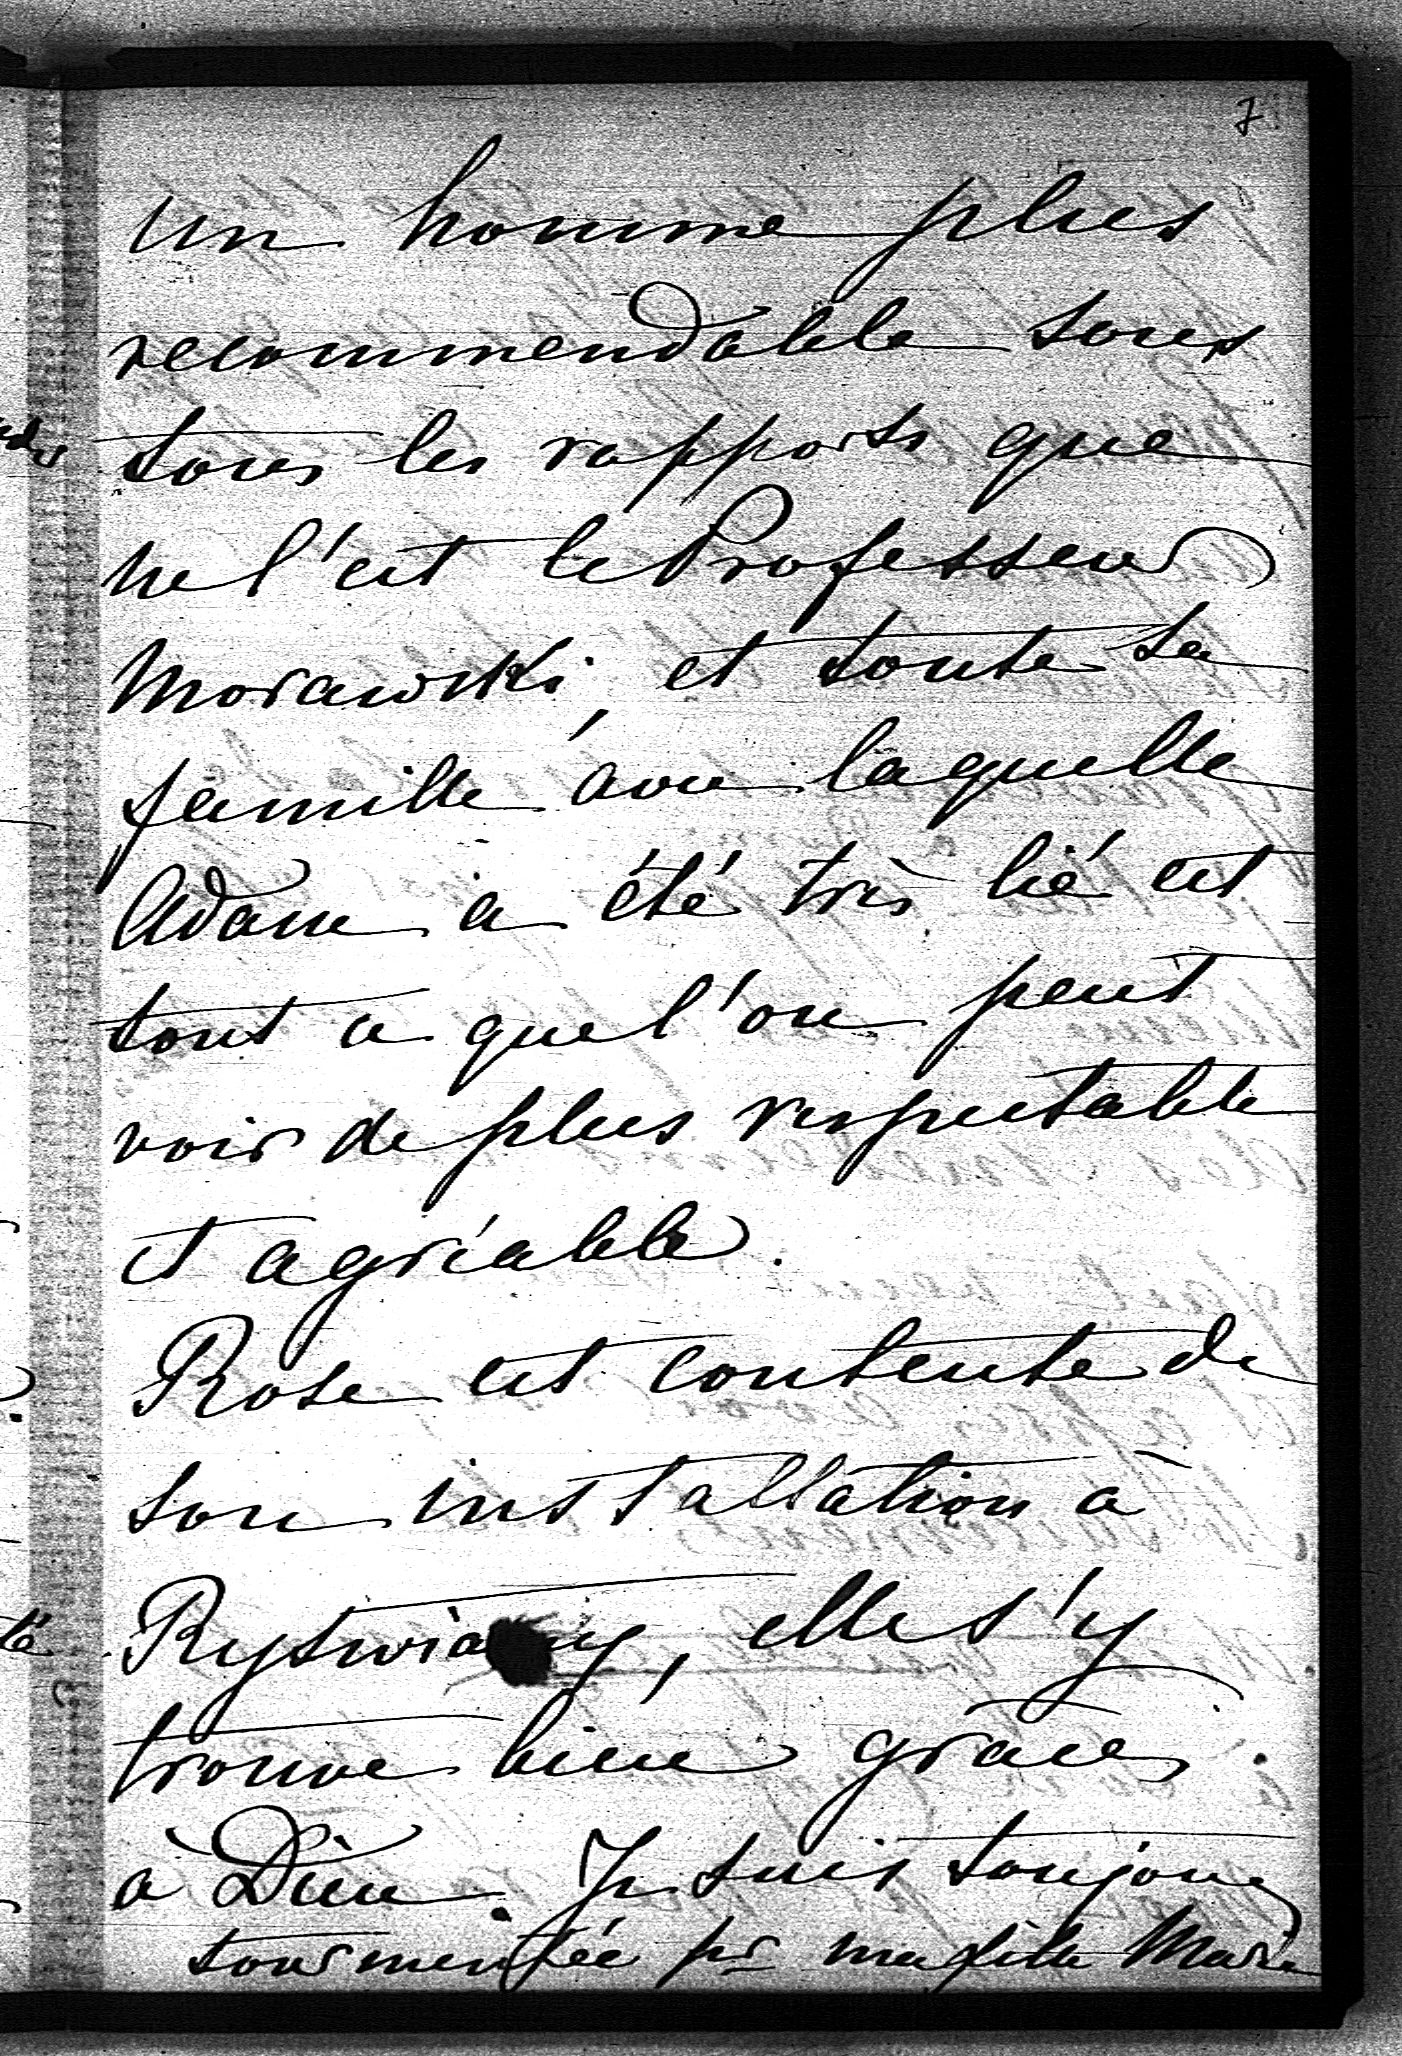 7
un homme plus
recommendable sous
tous les rapports que
ne l'est le Professeur
Morawski, et toute sa
famille avec laquelle
Adam a été très lié est
tout ce que l'on peut
voir de plus respectable
et agréable.
Rose est contente de
son installation à
elle s'y
trouve bien grâces
à Dieu. Je suis toujours
tourmentée pr ma fille Marie